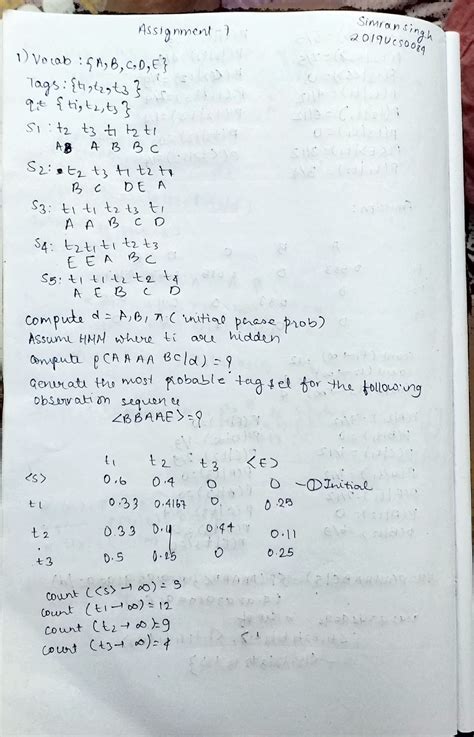 Assignment-7
Simran singh
2019UCS0089
1) Vocab : {A,B,C,D,E}
Tags: {t1,t2,t3}
q,t {t1,t2,t3}
S1 : t2 t3 t1 t2 t1
A A B B C
S2: t2 t3 t1 t2 t1
B C D E A
S3: t1 t1 t2 t3 t1
A A B C D
S4: t2 t1 t1 t2 t3
E E A B C
S5: t1 t1 t2 t2 t4
A E B C D
compute d = A, B, π (initial phrase prob)
Assume HMM where ti are hidden
compute p(A A A A B C/d) = ?
Generate the most probable tag set for the following
observation sequence
<BBAAE>=?
t1 t2 t3 <E>
<S> 0.6 0.4 0 0 - ① Initial
t1 0.33 0.4167 0 0.25
t2 0.33 0.44 0.11
t3 0.5 0.25 0 0.25
count (<S> → ∞) = 5
count (t1 → ∞) = 12
count (t2 → ∞) = 9
count (t3 → ∞) = 4